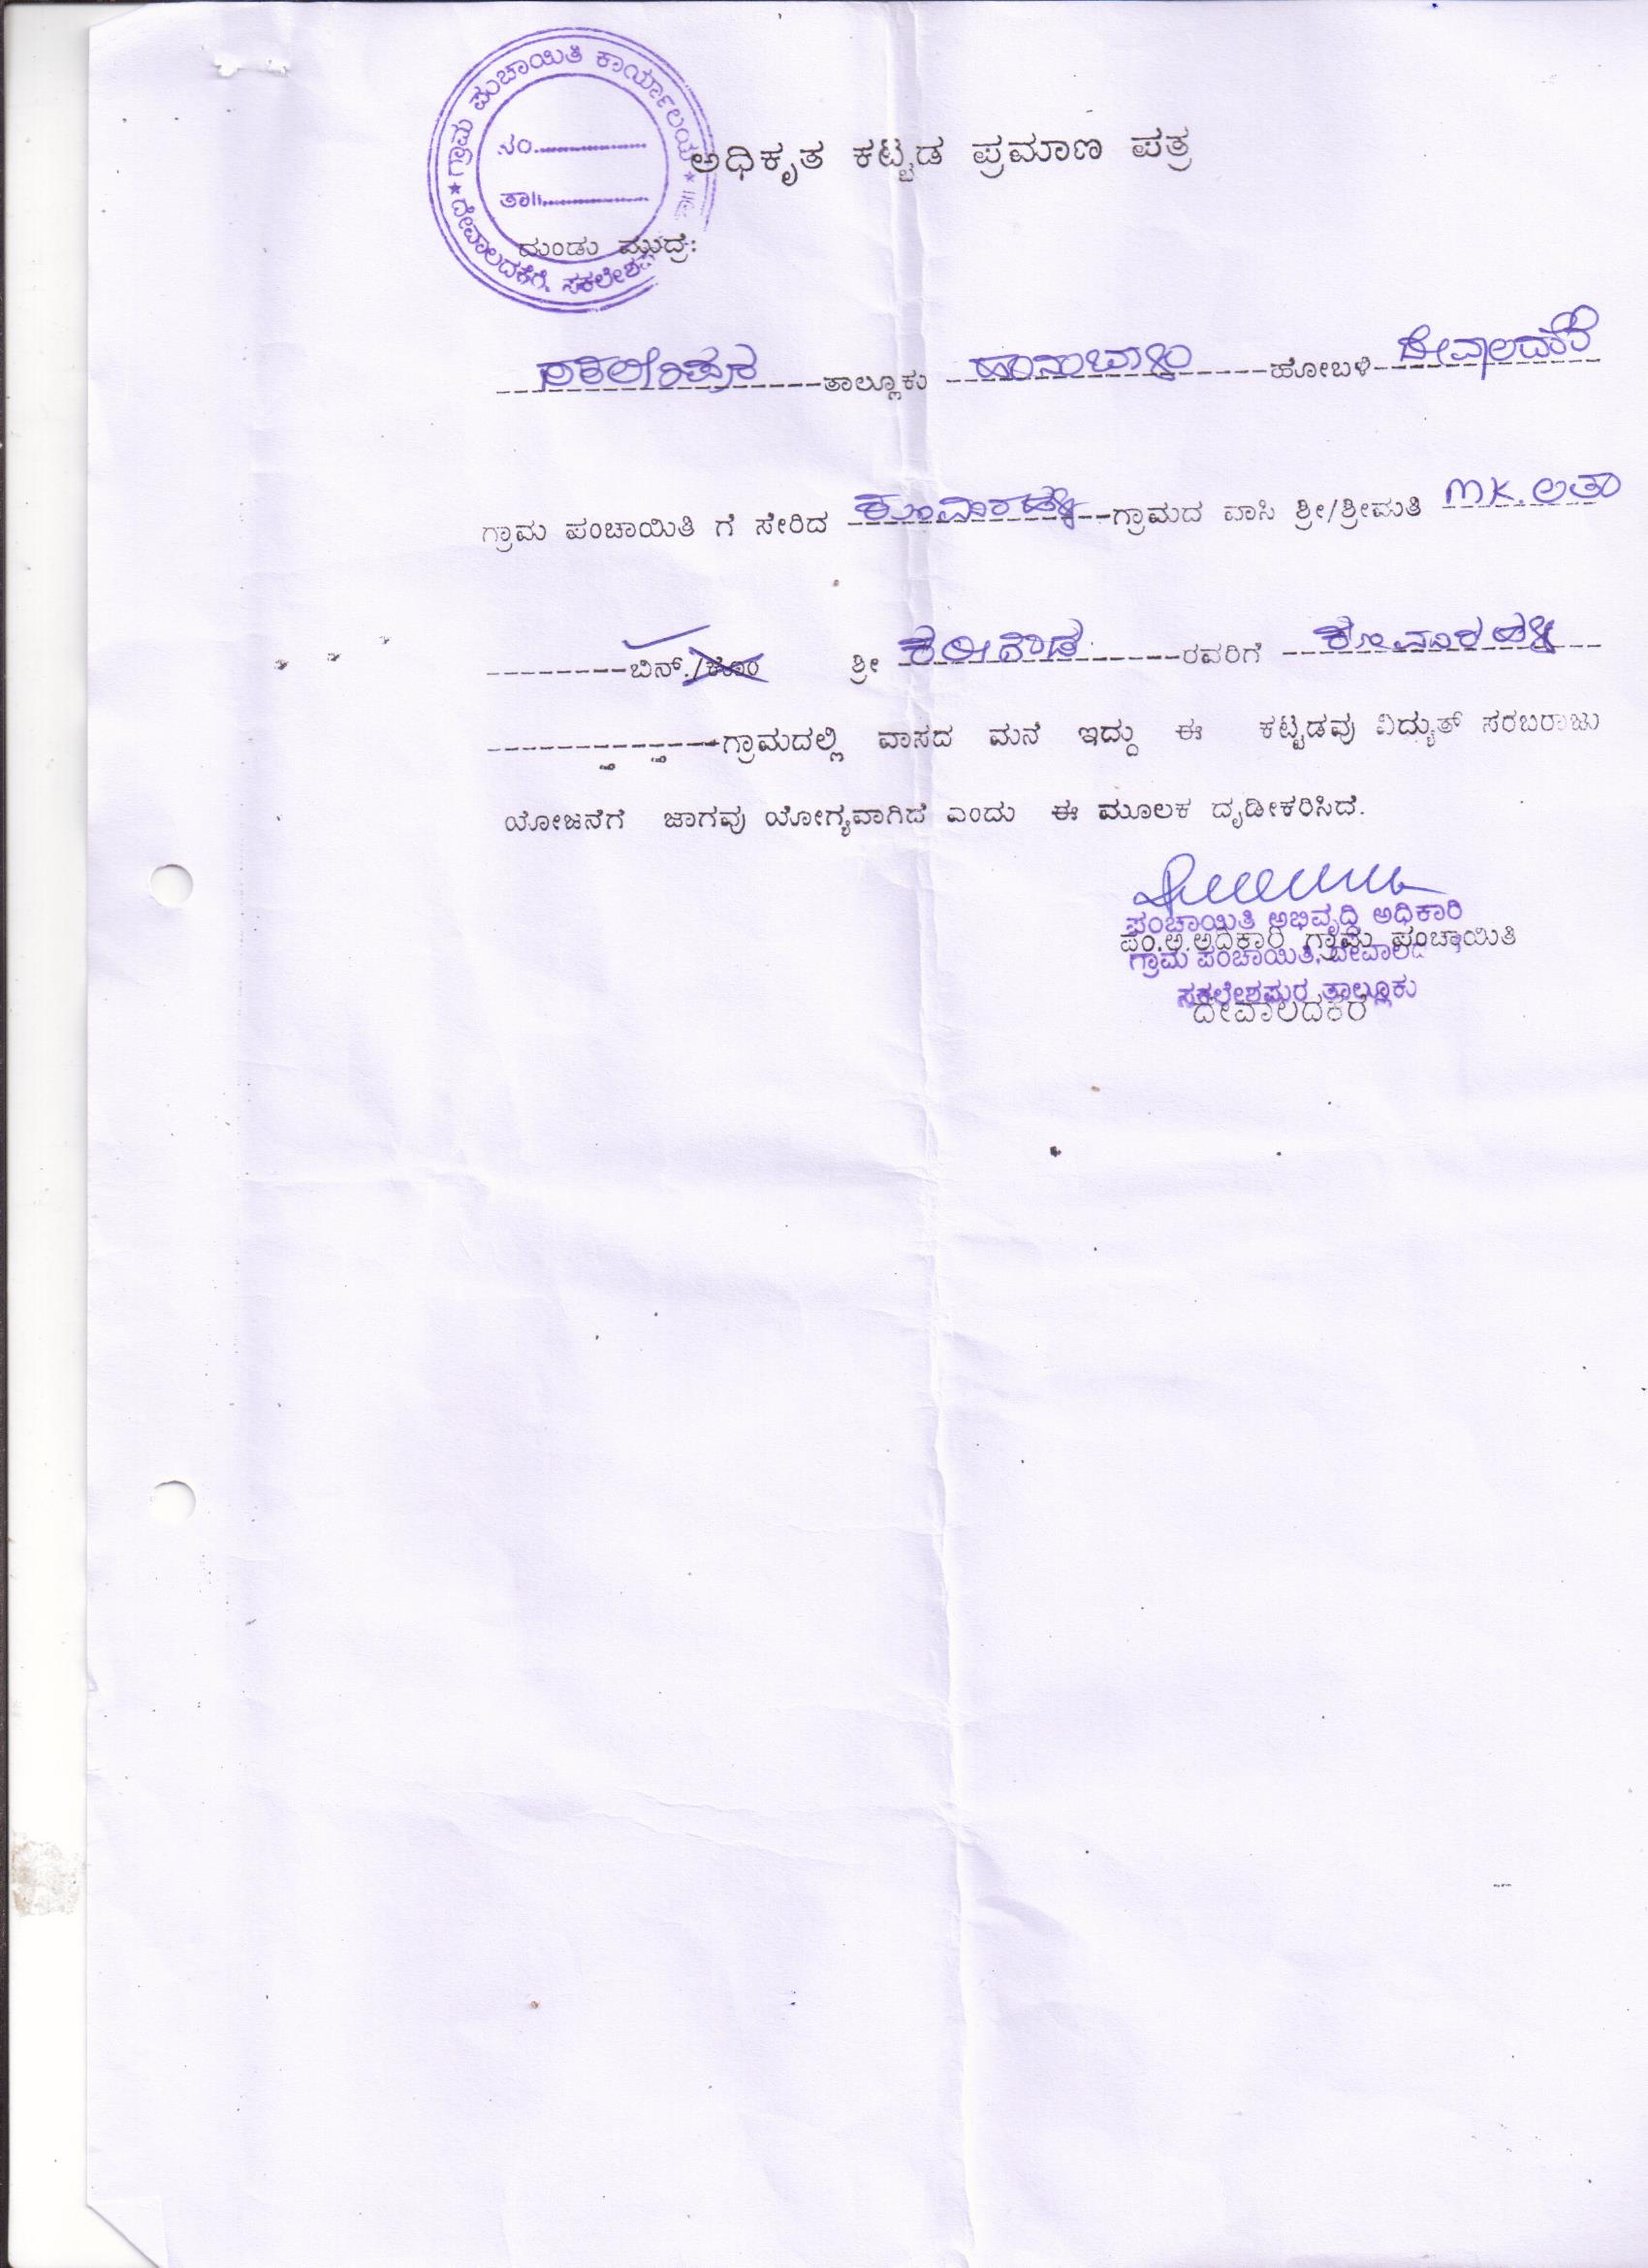 ಗ್ರಾಮ ಪಂಚಾಯಿತಿ ಕಾರ್ಯಾಲಯ
ನಂ.
ತಾ||
ದೇವಾಲದಕೆರೆ, ಸಕಲೇಶಪು
ಅಧಿಕೃತ ಕಟ್ಟಡ ಪ್ರಮಾಣ ಪತ್ರ
ದುಂಡು ಮುದ್ರೆ:
ತಾಲ್ಲೂಕು ಹಾನುಬಾಳು ಹೋಬಳಿ ದೇವಾಲದಕೆರೆ
ಗ್ರಾಮ ಪಂಚಾಯಿತಿ ಗೆ ಸೇರಿದ ಗ್ರಾಮದ ವಾಸಿ ಶ್ರೀ/ಶ್ರೀಮತಿ M.K. ಲತಾ
ಬಿನ್./ಕೋಂ ಶ್ರೀ ರವರಿಗೆ
ಗ್ರಾಮದಲ್ಲಿ ವಾಸದ ಮನೆ ಇದ್ದು ಈ ಕಟ್ಟಡವು ವಿದ್ಯುತ್ ಸರಬರಾಜು
ಯೋಜನೆಗೆ ಜಾಗವು ಯೋಗ್ಯವಾಗಿದೆ ಎಂದು ಈ ಮೂಲಕ ದೃಡೀಕರಿಸಿದೆ.
ಪಂಚಾಯಿತಿ ಅಭಿವೃದ್ಧಿ ಅಧಿಕಾರಿ
ಪಂ.ಅ.ಅದಿಕಾರಿ ಗ್ರಾಮ ಪಂಚಾಯಿತಿ
ಗ್ರಾಮ ಪಂಚಾಯಿತಿ, ದೇವಾಲದ
ಸಕಲೇಶಪುರ ತಾಲ್ಲೂಕು
ದೇವಾಲದಕೆರೆ